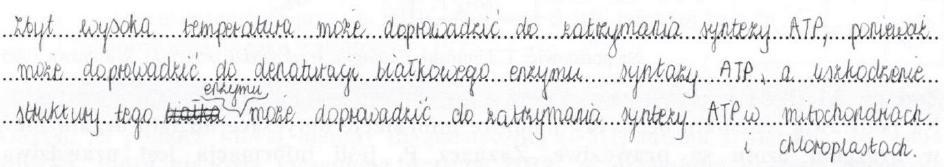 zbyt wysoka temperatura może doprowadzić do zatrzymania syntezy ATP, ponieważ
może doprowadzić do denaturacji białkowego enzymu syntazy ATP, a uszkodzenie
struktury tego białka enzymu może doprowadzić do zatrzymania syntezy ATP w mitochondriach
i chloroplastach.